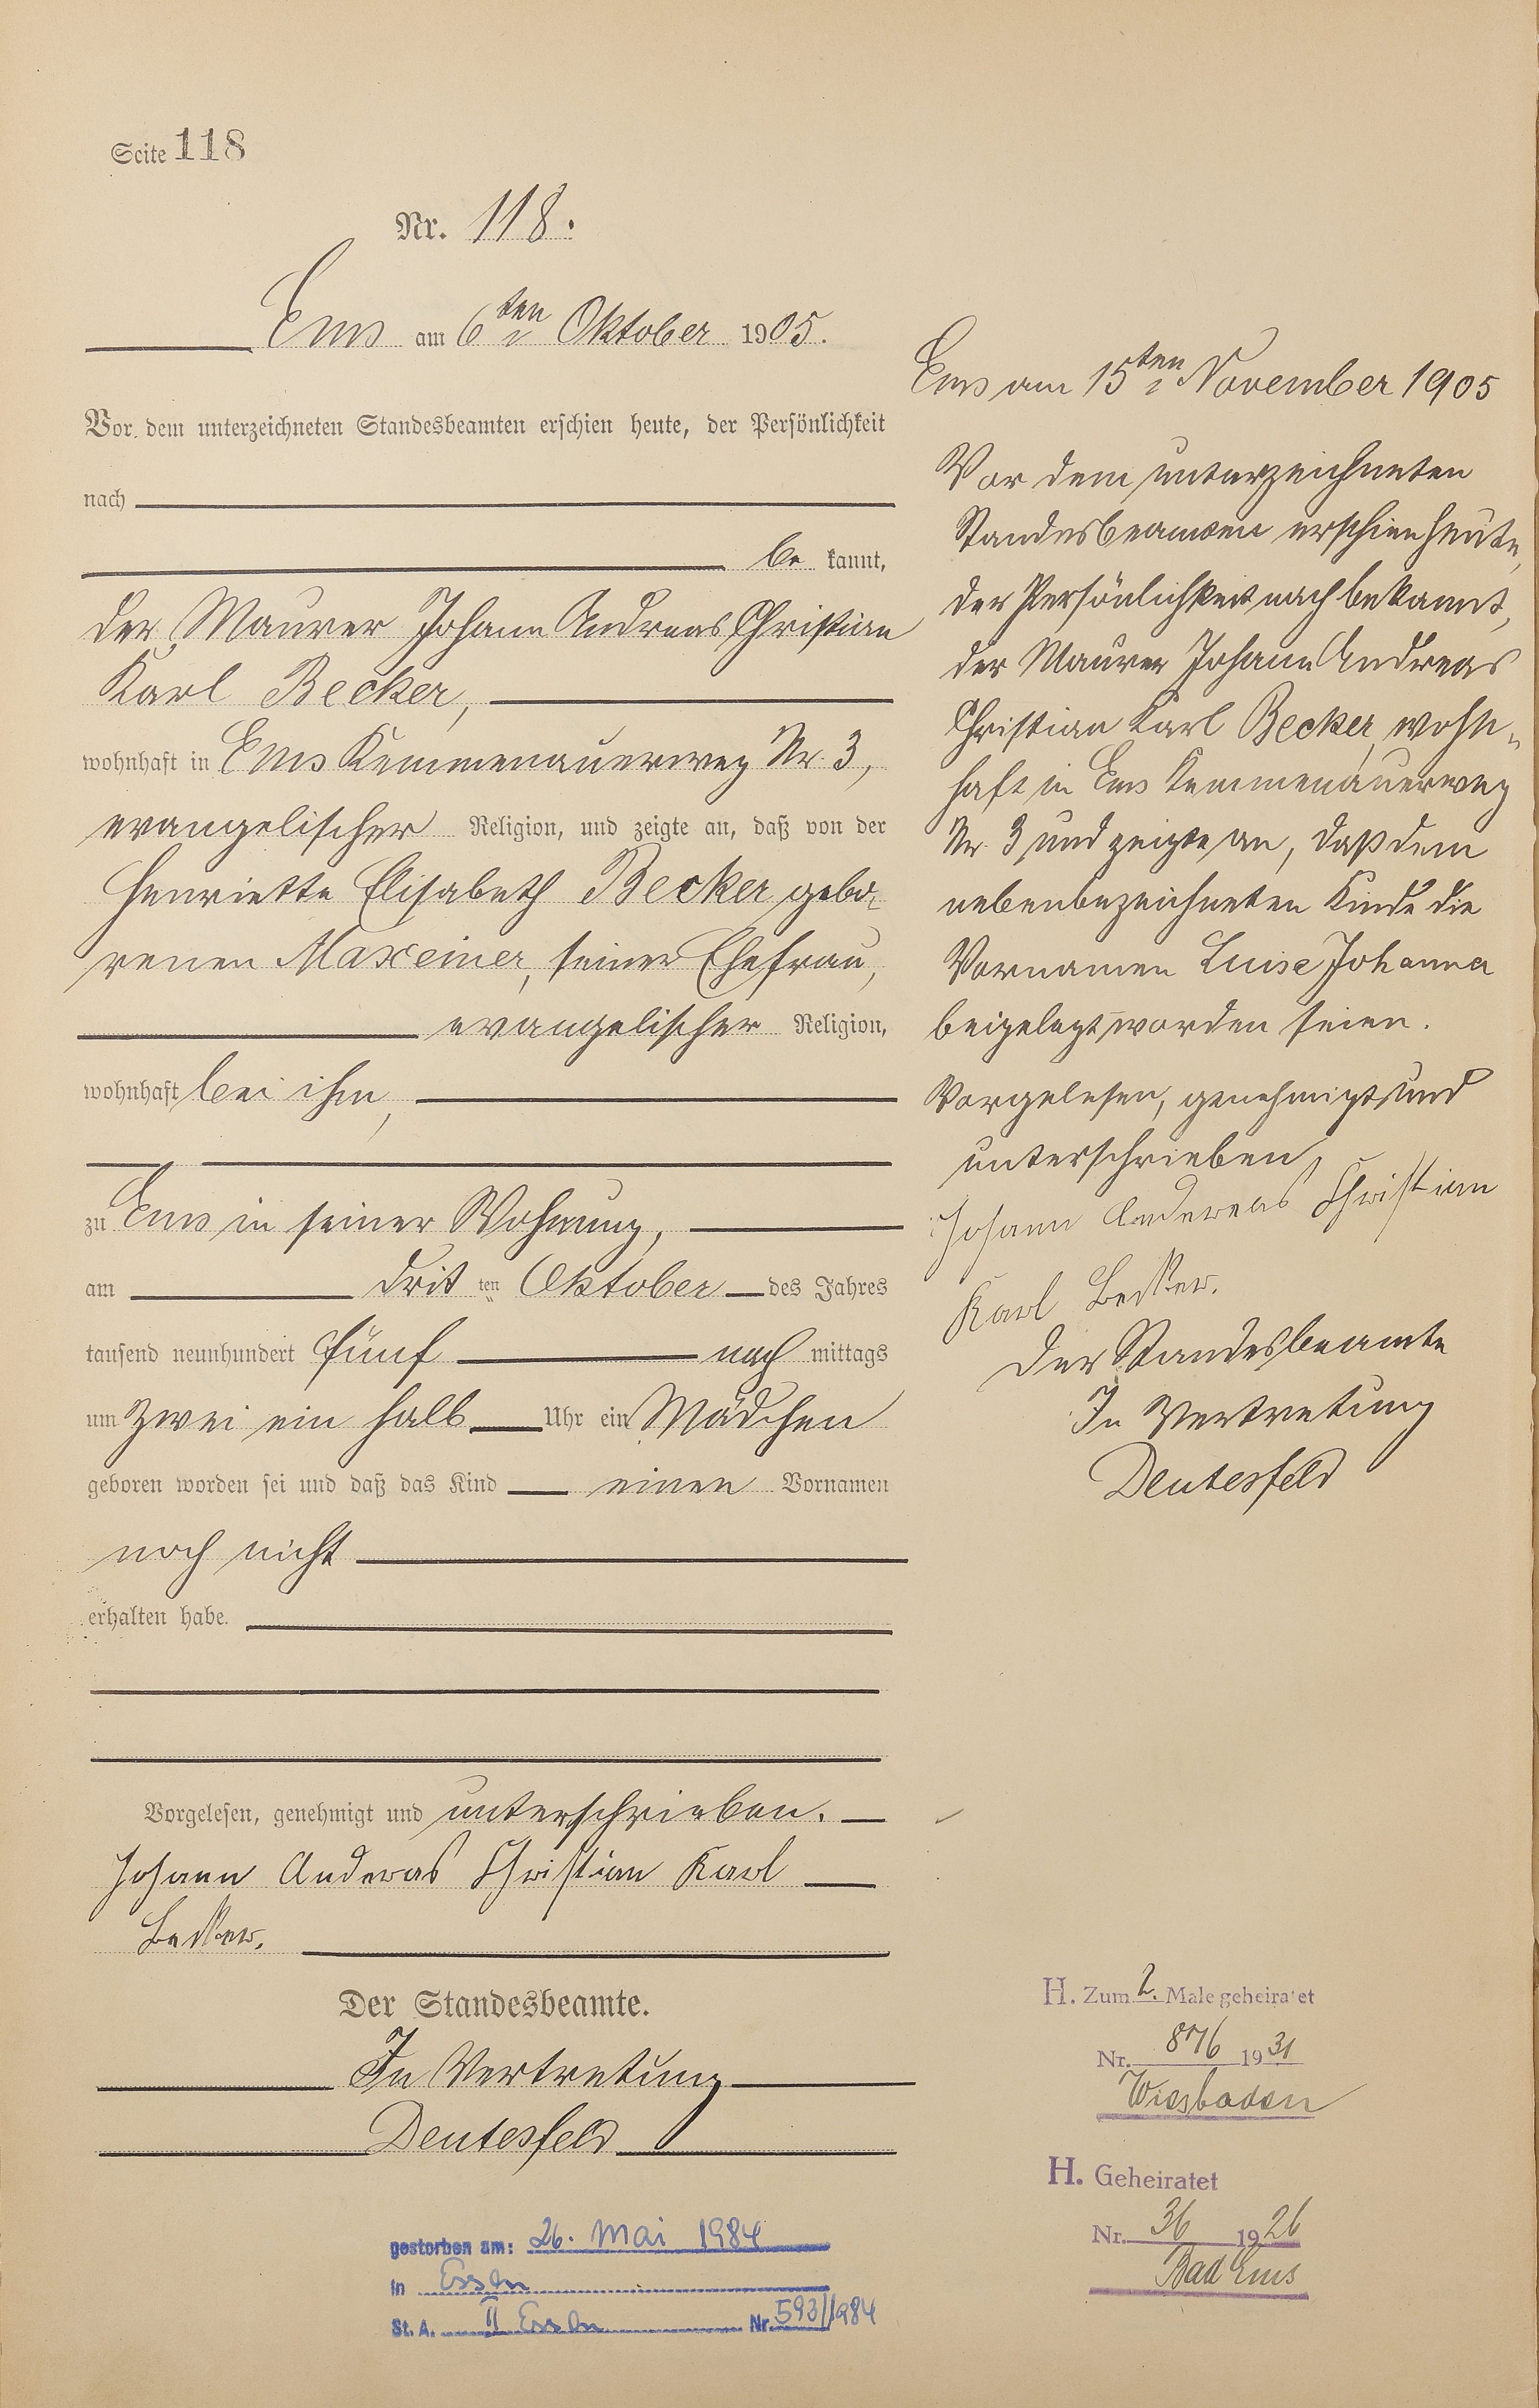 Seite 118
Nr. 118.
Ems am 6ten Oktober 1905.
Vor dem unterzeichneten Standesbeamten erschien heute, der Persönlichkeit
nach
be kannt,
der Maurer Johann Andreas Christian
Karl Becker,
wohnhaft in Ems Kemmenauerweg Nr. 3,
evangelischer Religion, und zeigte an, daß von der
Henriette Elisabeth Becker gebo-
renen Maxeiner, seiner Ehefrau,
evangelischer Religion,
wohnhaft bei ihm,
zu Ems in seiner Wohnung,
am dritten Oktober des Jahres
tausend neunhundert fünf nach mittags
um zwei ein halb Uhr ein Mädchen
geboren worden sei und daß das Kind einen Vornamen
noch nicht
erhalten habe.
Vorgelesen, genehmigt und unterschrieben.
Johann Anderas Christian Karl
Becker.
Der Standesbeamte.
In Vertretung
Deutesfeld
gestorben am: 26. Mai 1984
in Essen
St. A. II Essen Nr. 593/1984
Ems am 15ten November 1905
Vor dem unterzeichneten
Standesbeamten erschien heute,
der Persönlichkeit nach bekannt,
der Maurer Johann Andreas
Christian Karl Becker, wohn-
haft in Ems Kemmenauerweg
Nr. 3 und zeigte an, daß dem
nebenbezeichneten Kinde die
Vornamen Luise Johanna
beigelegt worden seien.
Vorgelesen, genehmigt und
unterschrieben
Johann Andereas Christian
Karl Becker.
Der Standesbeamte
In Vertretung
Deutesfeld
H. Zum 2. Male geheiratet
Nr. 876 1931
Wiesbaden
H. Geheiratet
Nr. 36 1926
Bad Ems